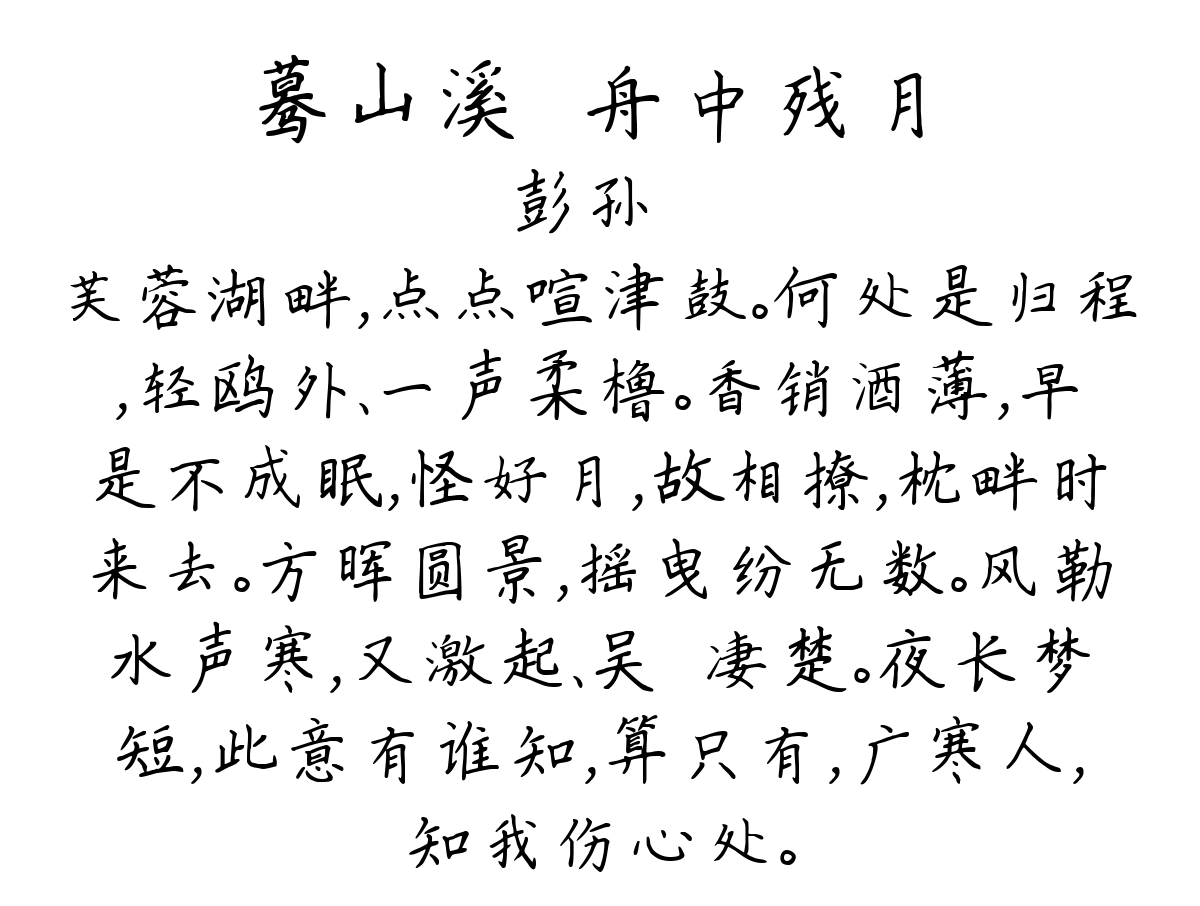 蓦山溪 舟中残月
彭孙
芙蓉湖畔,点点喧津鼓。何处是归程
,轻鸥外、一声柔橹。香销酒薄,早
是不成眠,怪好月,故相撩,枕畔时
来去。方晖圆景,摇曳纷无数。风勒
水声寒,又激起、吴 凄楚。夜长梦
短,此意有谁知,算只有,广寒人,
知我伤心处。